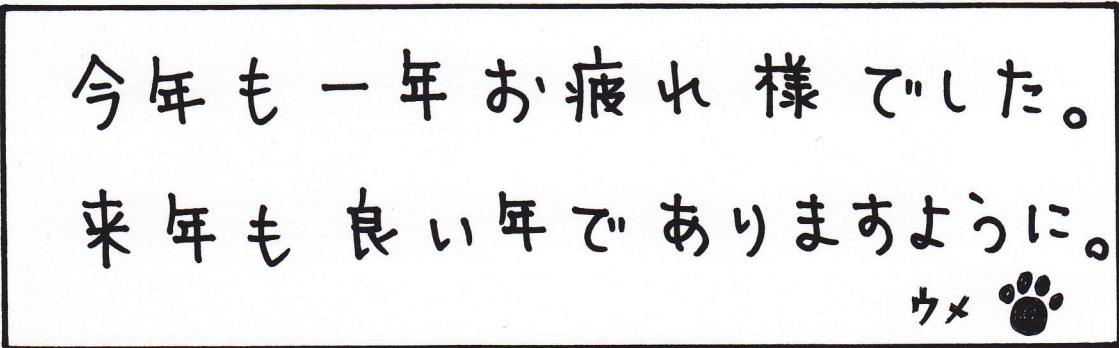 今年も一年お疲れ様でした。
来年も良い年でありますように。
ウメ